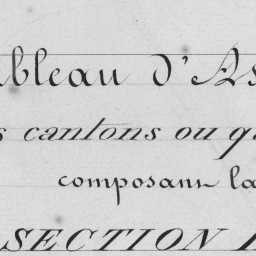 ableau d'As
s cantons ou qu
composant la
SECTION